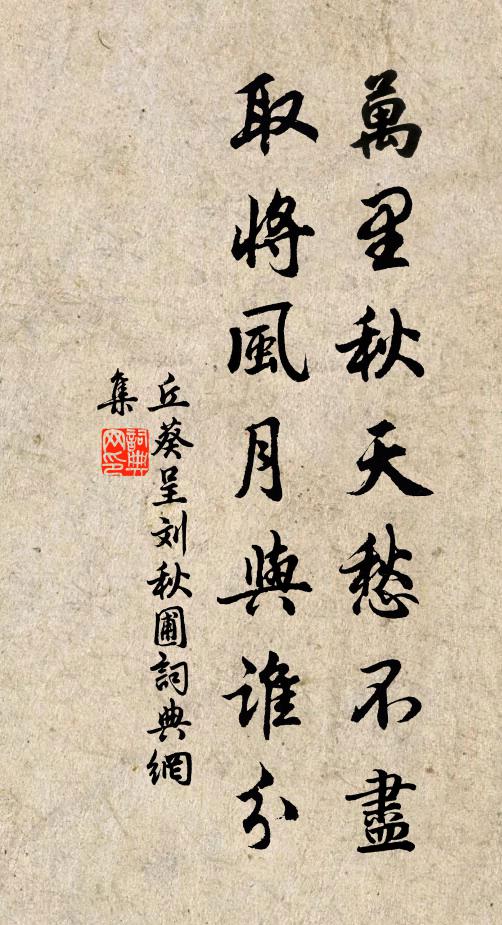 萬里秋天愁不盡
取將風月與誰分
丘葵呈刘秋圃詞典網
集
詞典网印